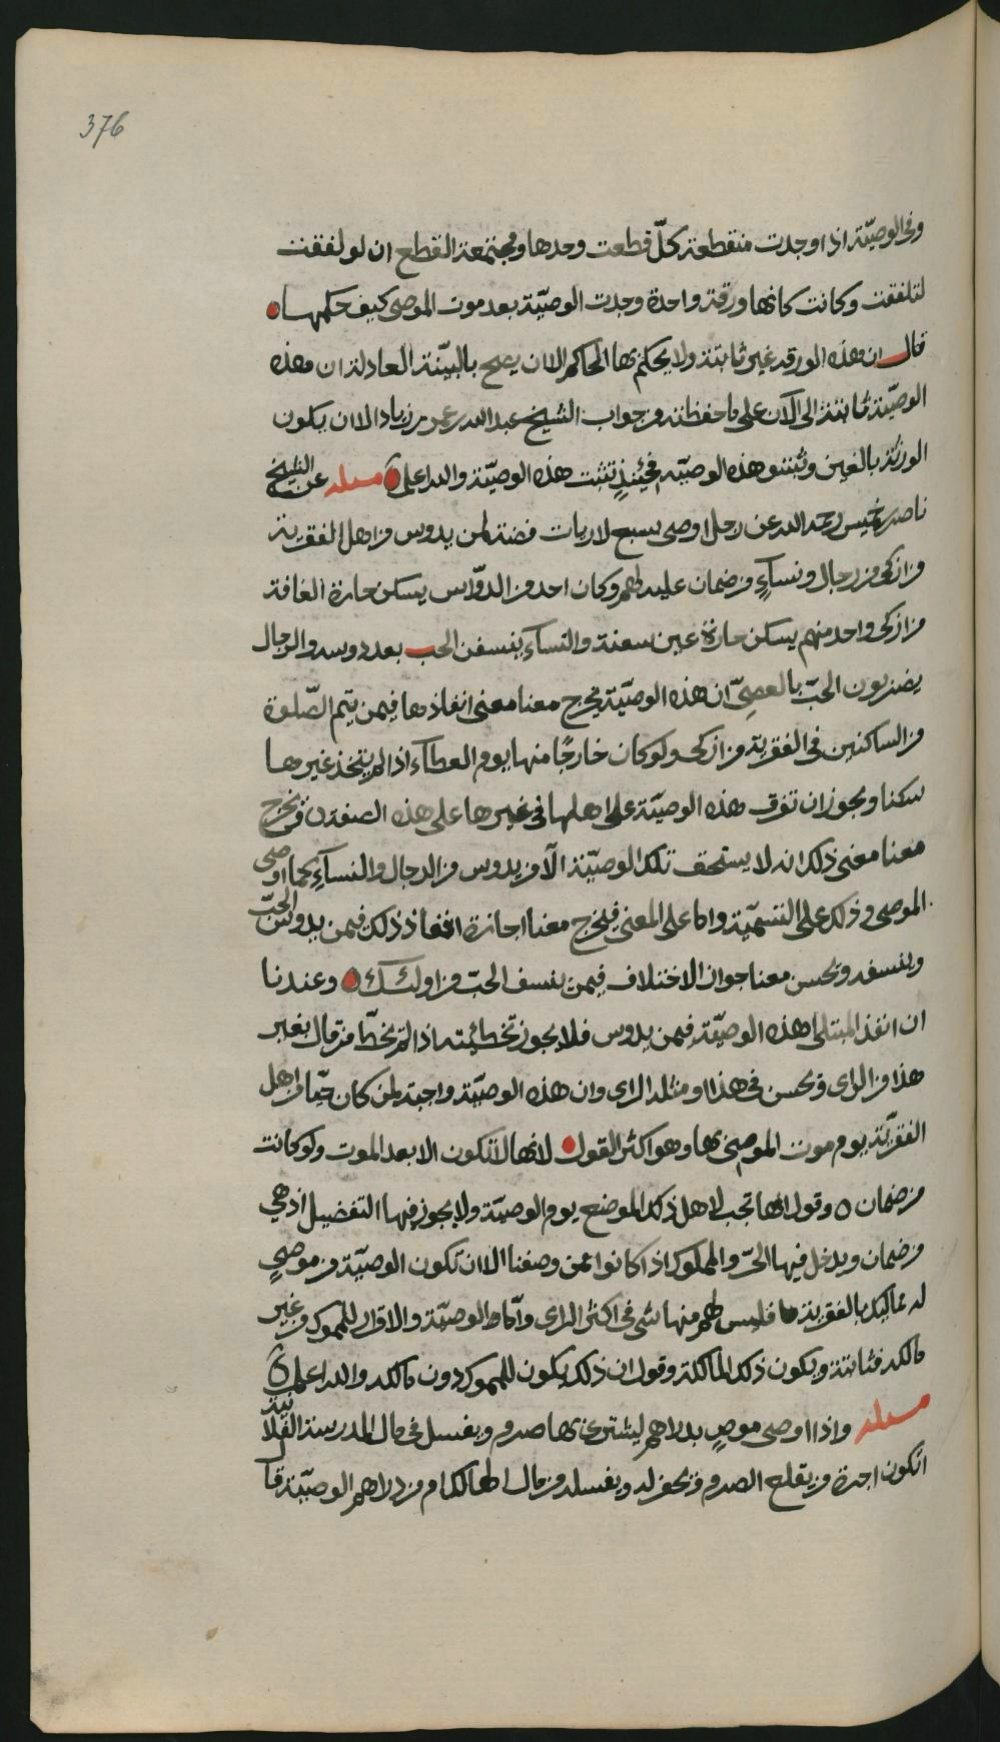 376
وفي الوصيّة اذا وجدت منقطعة كلّ قطعت وحدها ومجتمعة القطع ان لو لفقت
لتلفقت وكانت كانها ورقة واحدة وجدت الوصيّة بعد موت الموصي كيف حكمها
قال ان هذه الورقة غير ثابتة ولا يحكم بها الحاكم الا ان يصح بالبيّنة العادلة ان هذه
الوصيّة ثابتة الى الآن على ما حفظته من جواب الشيخ عبدالله بن عمر بن زياد الا ان يكون
الورثة بالغين وثبتو هذه الوصيّة فحينئذٍ تثبت هذه الوصيّة والله اعلم مسئلة عن الشيخ
ناصر بن خميس رحمه الله عن رجل اوصى بسبع لاريات فضة لمن يدوس من اهل الفقرية
من ازكي من رجال ونساءٍ من ضمان عليه لهم وكان احد من الدوّاس يسكن حارة الغافة
من ازكي واحد منهم يسكن حارة عين سعنة والنساء ينسفن الحب بعد دوسه والرجال
يضربون الحبّ بالعصيّ ان هذه الوصيّة يخرج معنا معنى انفاذها فيمن يتم الصّلوة
من الساكنين في الفقرية من ازكي ولو كان خارجًا منها يوم العطاء اذا لم يتخذ غيرها
سكنا ويجوز ان تفرق هذه الوصيّة على اهلها في غيرها على هذه الصفة ويخرج
معنا معنى ذلك انه لا يستحق تلك الوصيّة الّا من يدوس من الرجال والنساءِ كما اوصى
الموصي وذلك على التسميّة واما على المعنى فيخرج معنا اجازة انفاذ ذلك فيمن يدوس الحبّ
وينسفه ويحسن معنا جواز الاختلاف فيمن ينسف الحب من اولئك وعندنا
ان انفذ المبتلى هذه الوصيّة فيمن يدوس فلا يجوز تخطائيته اذا لم يخطّا من قال بغير
هذا من الراى ويحسن في هذا ومثله الراى وان هذه الوصيّة واجبة لمن كان حيّا من اهل
الفقريّة يوم موت الموصي بها وهو اكثر القول لانها لا تكون الا بعد الموت ولو كانت
من ضمان ٥ وقول انها تجب لاهل ذلك الموضع يوم الوصيّة ولا يجوز فيها التفضيل اذ هي
من ضمان ويدخل فيها الحرّ والمملوك اذا كانوا ممن وصفنا الا ان تكون الوصيّة من موصيٍ
له مماليك بالفقرية فليس لهم منها شي في اكثر الراي وامّا الوصيّة والاقرار للمملوك من غير
مالكه فثابتة ويكون ذلك لمالكه وقول ان ذلك يكون للمملوك دون مالكه والله اعلم
مسئلة واذا اوصى موصٍ بدراهم ليشترى بها صرم ويفسل في مال المدرسة الفلانية
اتكون اجرة من يقلع الصرم ويحفر له ويفسله من مال ام من دراهم الوصيّة قا